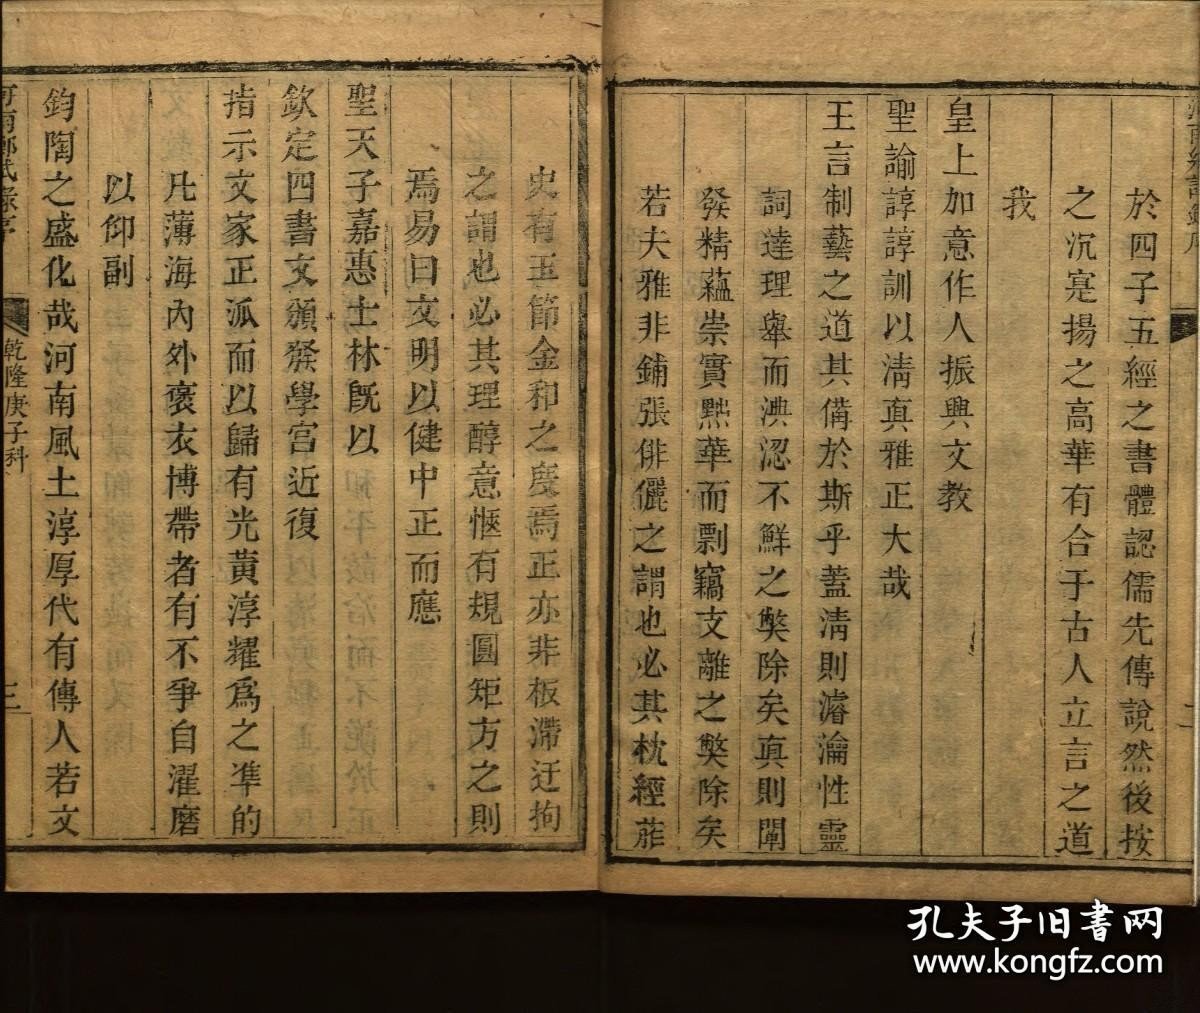 於四子五經之書體認儒先傳說然後按
之沉寔揚之高華有合于古人立言之道
我
皇上加意作人振興文教
聖諭諄諄訓以淸眞雅正大哉
王言制藝之道其備於斯乎蓋淸則濬瀹性靈
詞達理舉而淟涊不鮮之獘除矣眞則闡
發精蘊崇實黜華而剽竊支離之獘除矣
若夫雅非鋪張俳儷之謂也必其枕經葄
史有玉節金和之度焉正亦非板滯迂拘
之謂也必其理醇意愜有規圓矩方之則
焉易曰文明以健中正而應
聖天子嘉惠士林旣以
欽定四書文頒發學宮近復
指示文家正派而以歸有光黃淳耀爲之準的
凡薄海內外褒衣博帶者有不爭自濯磨
以仰副
鈞陶之盛化哉河南風土淳厚代有傳人若文
河南鄉試錄序
乾隆庚子科
三
二
孔夫子旧书网
www.kongfz.com